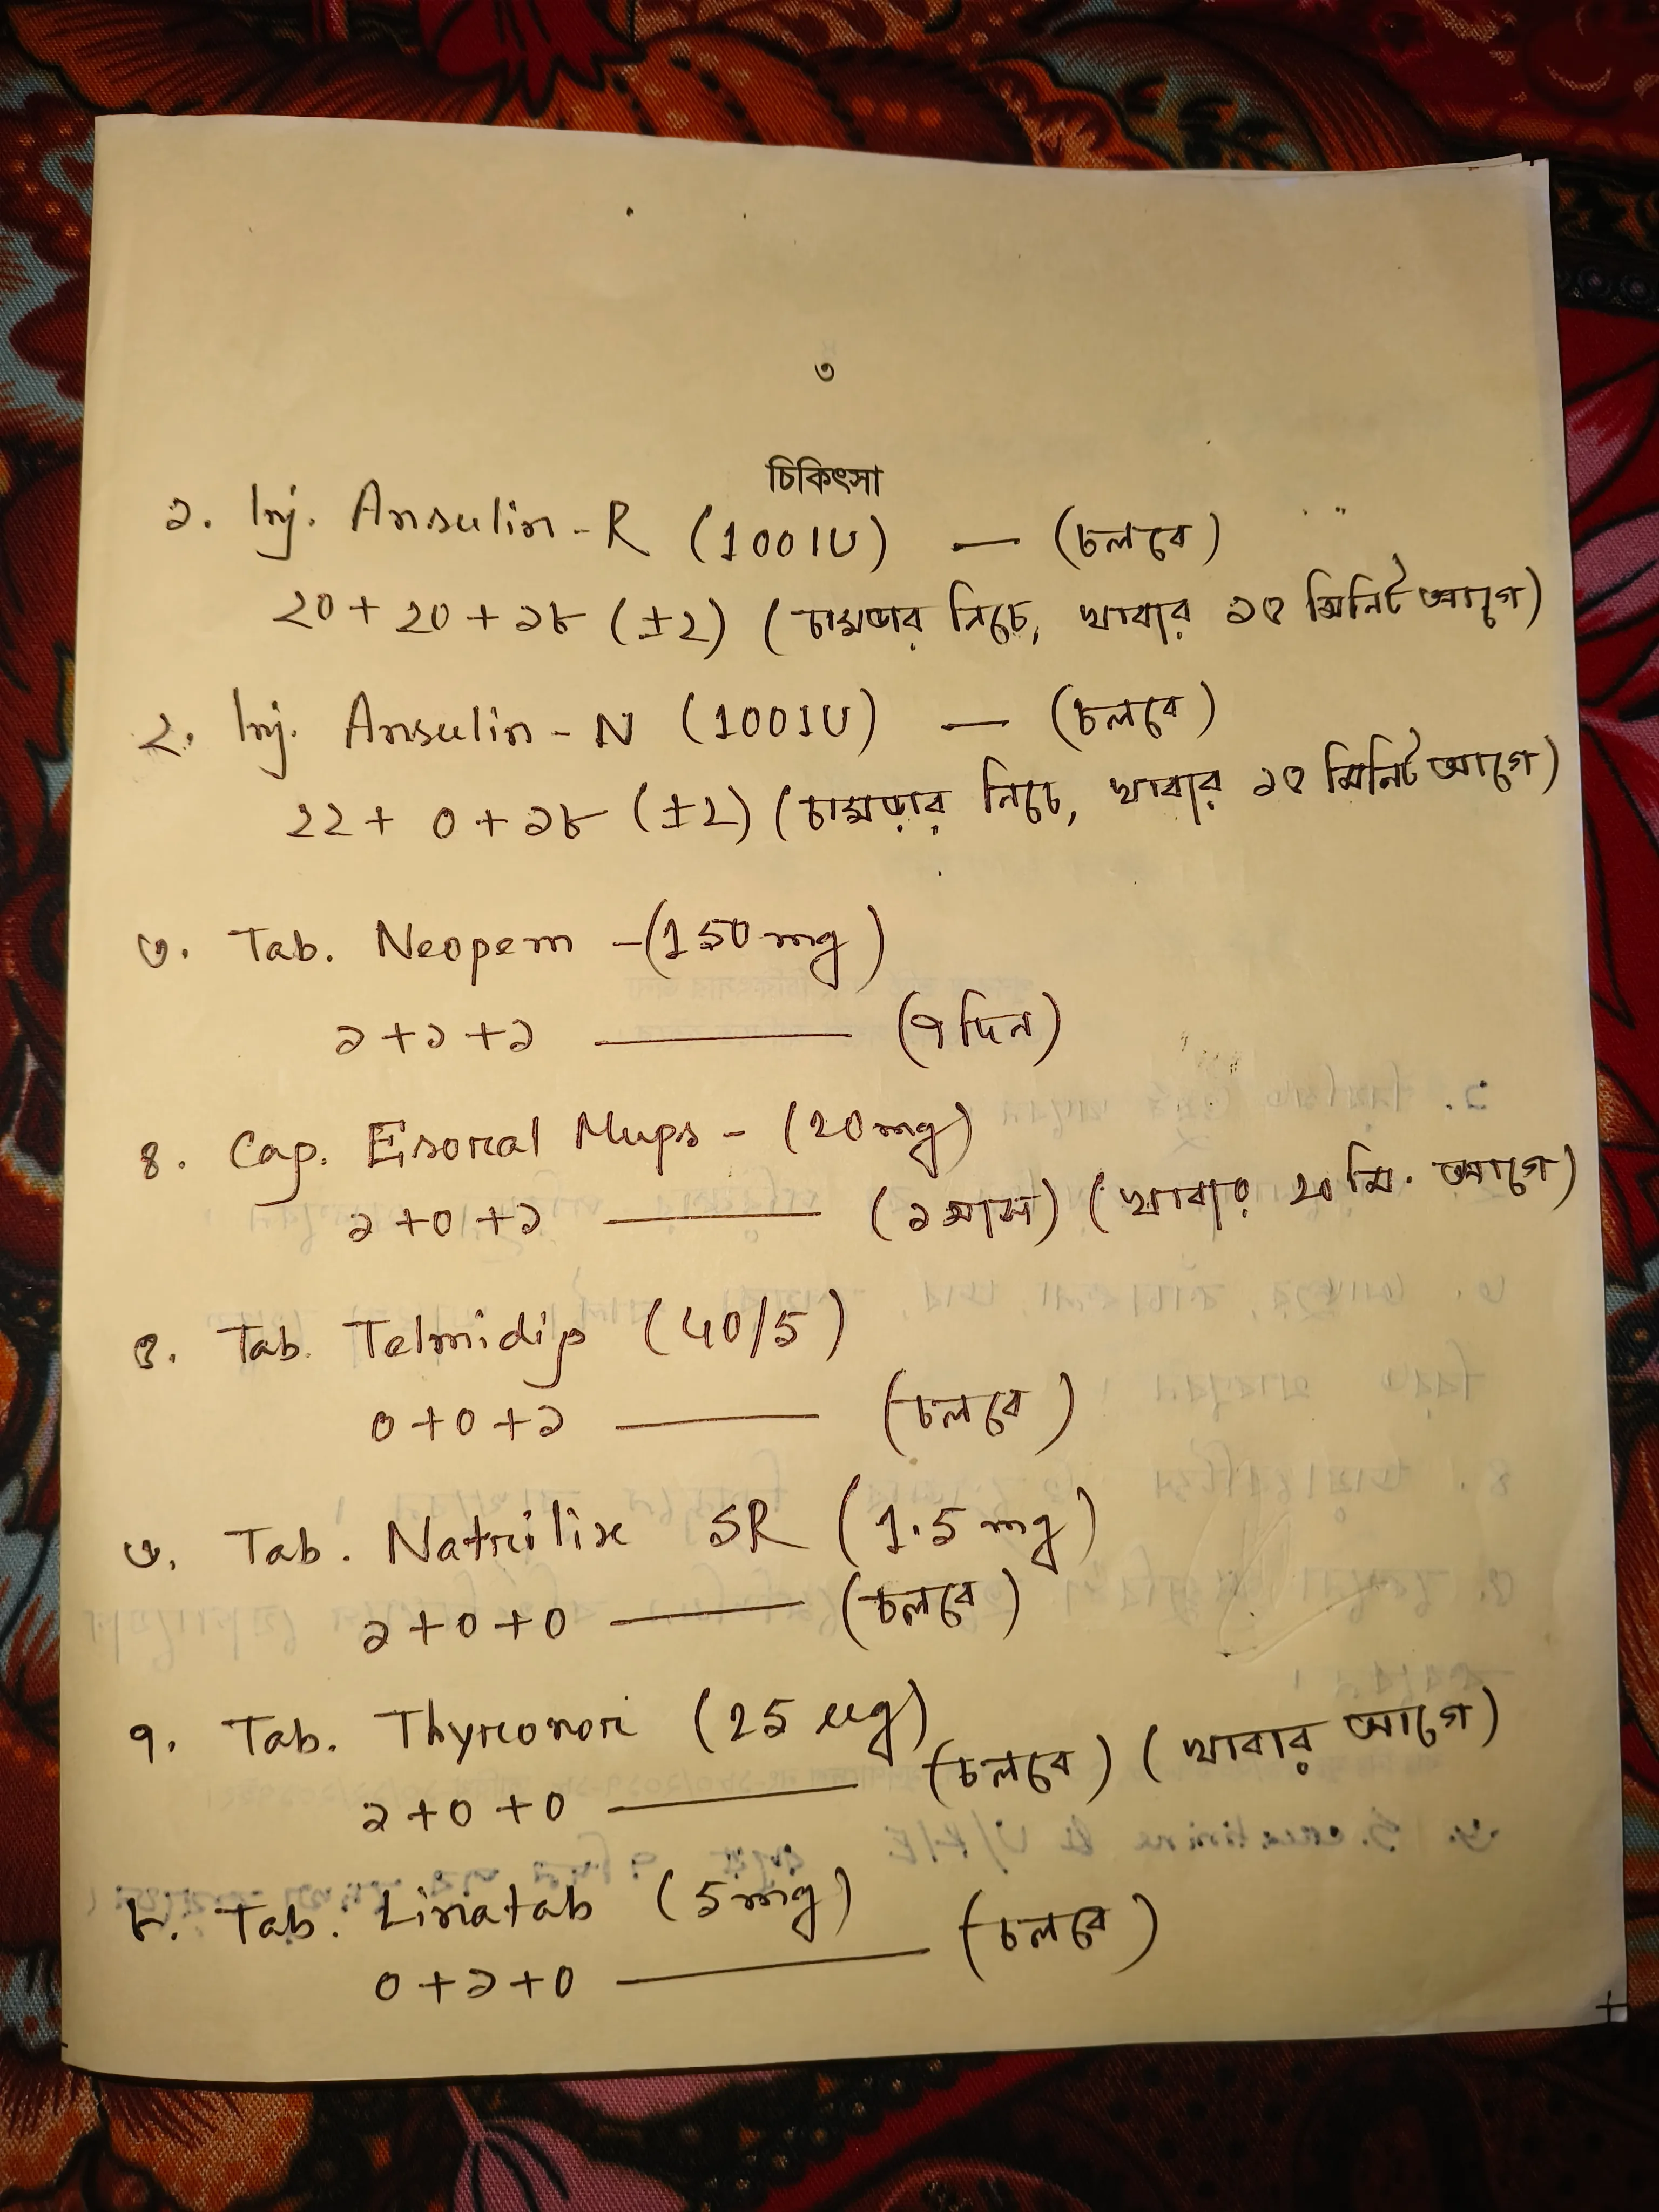 ৩
চিকিৎসা
১. Inj. Ansulin-R (100IU) — (চলবে)
২০ + ২০ + ১৮ (±২) (চামড়ার নিচে, খাবার ১৫ মিনিট আগে)
২. Inj. Ansulin-N (100IU) — (চলবে)
২২ + ০ + ১৮ (±২) (চামড়ার নিচে, খাবার ১৫ মিনিট আগে)
৩. Tab. Neopem -(150mg)
১+১+১ — (৭ দিন)
৪. Cap. Esoral Mups - (20mg)
১+০+১ — (১ মাস) (খাবার ২০ মি. আগে)
৫. Tab. Telmidip (40/5)
০+০+১ — (চলবে)
৬. Tab. Natrilix SR (1.5mg)
১+০+০ — (চলবে)
৭. Tab. Thyronor (25 ug)
১+০+০ — (চলবে) (খাবার আগে)
৮. Tab. Linatab (5mg)
০+১+০ — (চলবে)